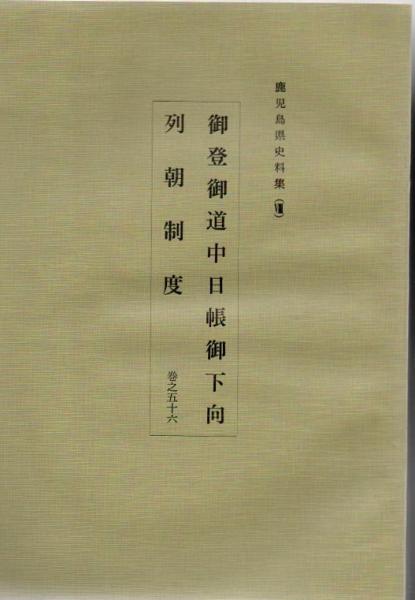 鹿児島県史料集(Ⅷ)
御登御道中日帳御下向
列朝制度 巻之五十六